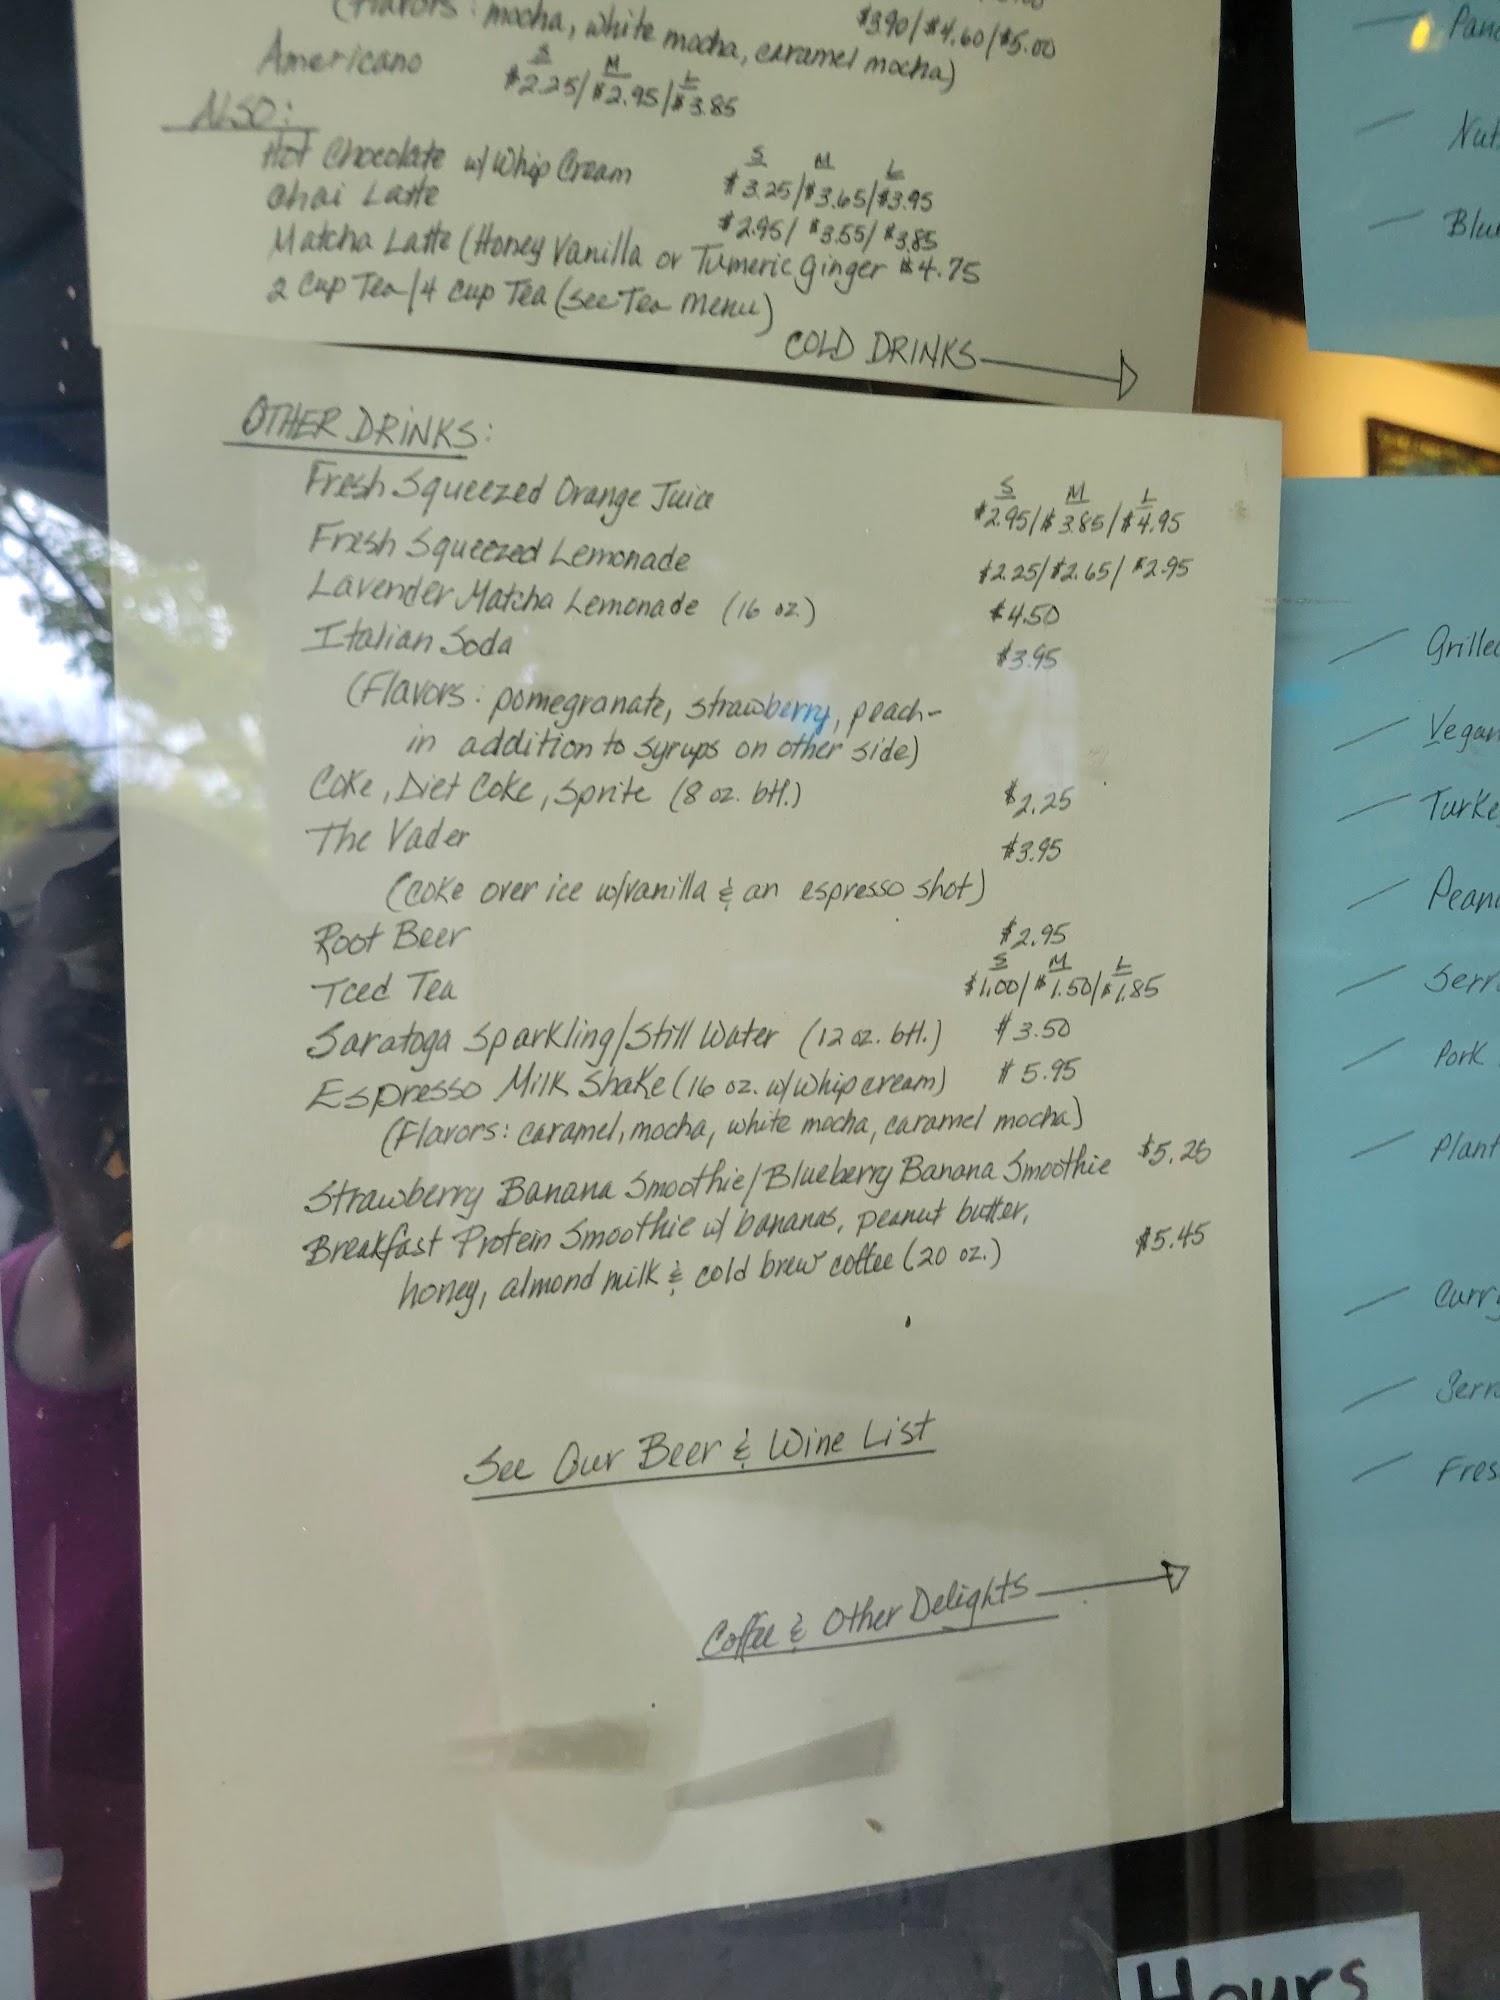 (Flavors: mocha, white mocha, caramel mocha)
$3.90/$4.60/$5.00
Americano
S M L
$2.25/$2.95/$3.85
ALSO:
S M L
Hot Chocolate w/ Whip Cream $3.25/$3.65/$3.95
Chai Latte $2.95/$3.55/$3.85
Matcha Latte (Honey Vanilla or Tumeric Ginger $4.75
2 Cup Tea/4 Cup Tea (See Tea Menu)
COLD DRINKS
OTHER DRINKS:
S M L
Fresh Squeezed Orange Juice $2.95/$3.85/$4.95
Fresh Squeezed Lemonade $2.25/$2.65/$2.95
Lavender Matcha Lemonade (16 oz.) $4.50
Italian Soda $3.95
(Flavors: pomegranate, strawberry, peach-
in addition to syrups on other side)
Coke, Diet Coke, Sprite (8 oz. btl.) $2.25
The Vader $3.95
(Coke over ice w/vanilla & an espresso shot)
Root Beer $2.95
S M L
Iced Tea $1.00/$1.50/$1.85
Saratoga Sparkling/Still Water (12 oz. btl.) $3.50
Espresso Milk Shake (16 oz. w/whip cream) $5.95
(Flavors: caramel, mocha, white mocha, caramel mocha)
Strawberry Banana Smoothie/Blueberry Banana Smoothie $5.25
Breakfast Protein Smoothie w/ bananas, peanut butter,
honey, almond milk & cold brew coffee (20 oz.) $5.45
See Our Beer & Wine List
Coffee & Other Delights
Grilled
Vegan
Plant
Curry
Pork
Hours